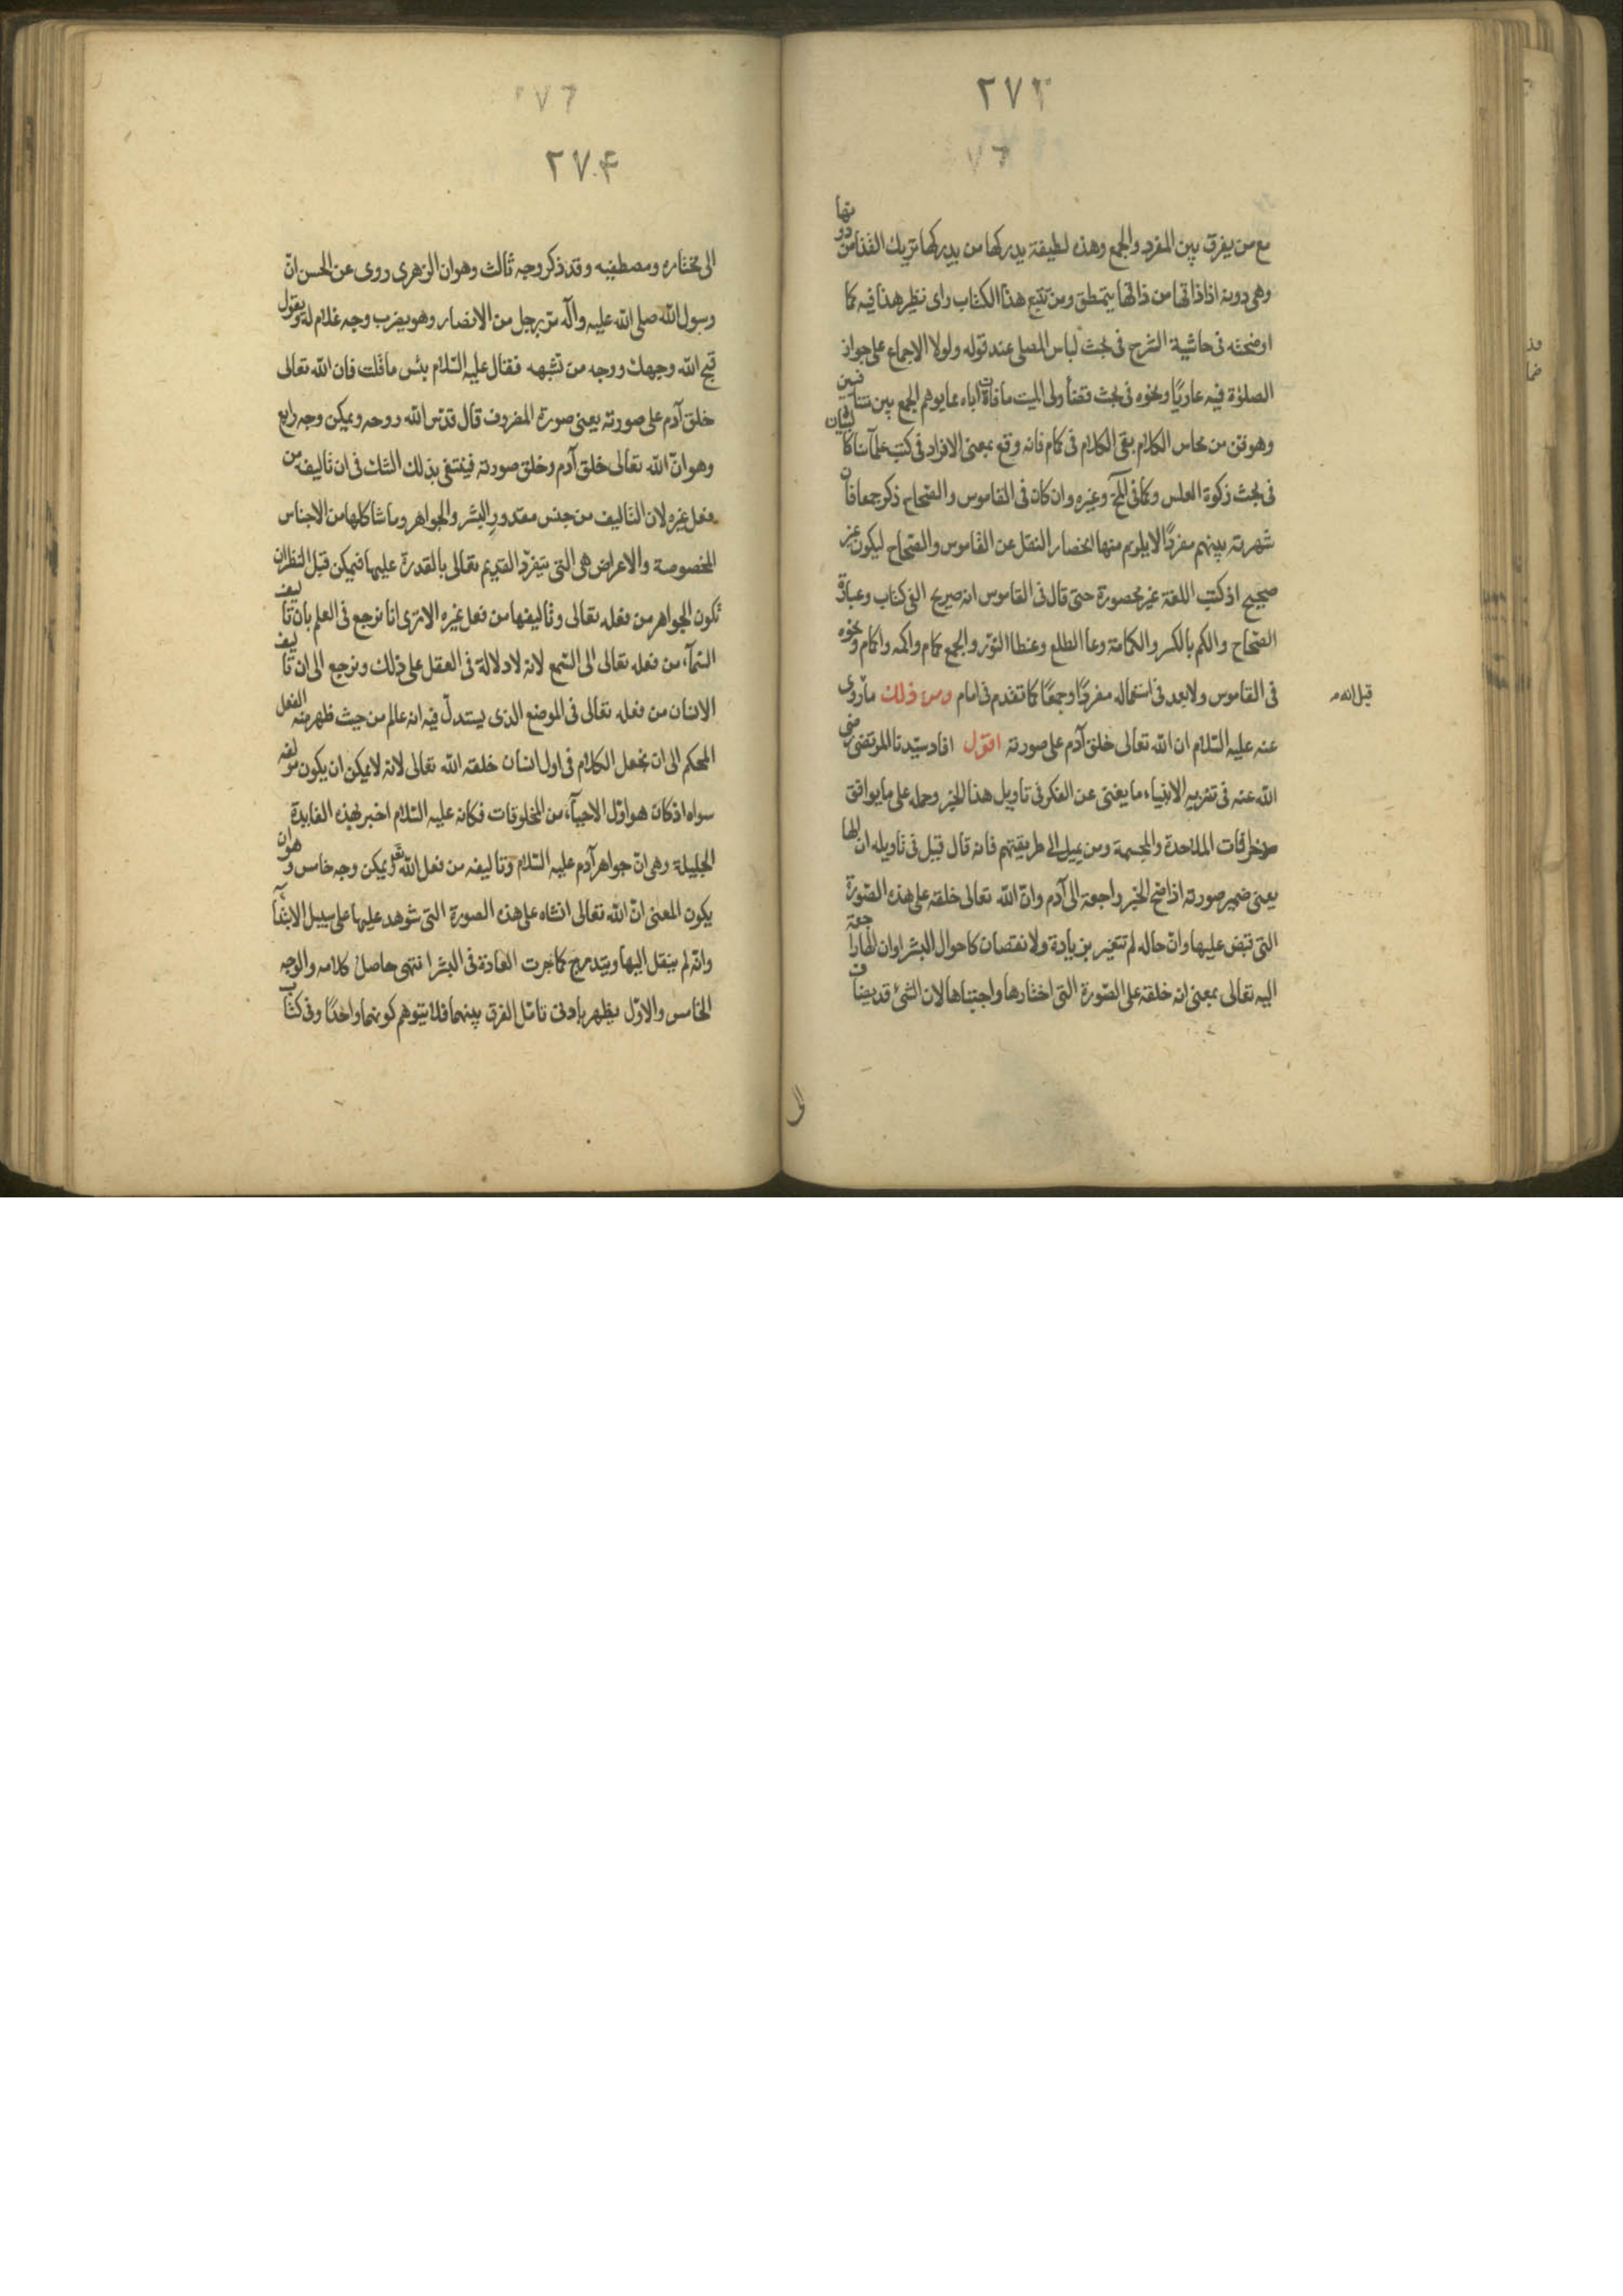 ٢٧٣
٧٦
مع من يفرق بين المفرد والجمع وهذه لطيفة يدركها من يدركها تريك القذا من دونها
وهى دونه اذا ذاقها من ذاقها يتمطق ومن تتبع هذا الكتاب راى نظير هذا فيه كما
اوضحته فى حاشية الشرح فى بحث لباس المصلى عند قوله ولولا الاجماع على جواز
الصلوة فيه عاريًا ونحوه فى بحث قضاء ولى الميت ما فات اباه مما يوهم الجمع بين متنافيين
وهو فن من محاسن الكلام بقى الكلام فى كمام فانه وقع بمعنى الافراد فى كتب علمآئنا كالبيان
فى بحث زكوة العلس وكما فى وغيره وان كان فى القاموس والصحاح ذكر جمعا فان
شهرته بينهم مفردًا لا يلزم منها انحصار النقل عن القاموس والصحاح ليكون غير
صحيح اذ كتب اللغة غير محصورة حتى قال فى القاموس انه صريح الفى كتاب وعبارة
الصحاح والكم بالكسر والكمامة وعا الطلع وغطا النور والجمع كمام واكمه واكمام ونحوه
فى القاموس ولا بعد فى استعماله مفردًا وجمعًا كما تقدم فى امام ومن ذلك ما روى
قيل انه م
عنه عليه السّلام ان الله تعالى خلق آدم على صورته اقول افاد سيّدنا المرتضى رضى
الله عنه فى تنزيه الانبياء ما يغنى عن الفكر فى تاويل هذا الخبر وحمله على ما يوافق
خرافات الملاحدة والمجسمة ومن يميل الى طريقتهم فانه قال قيل فى تاويله ان الها
يعنى ضمير صورته اذا صح الخبر راجعة الى آدم وانّ الله تعالى خلقه على هذه الصّورة
التى قبض عليها وانّ حاله لم تتغير بزيادة ولا نقصان كاحوال البشر او ان الها راجعة
اليه تعالى بمعنى انه خلقه على الصّورة التى اختارها واجتباها لان الشئ قد يضاف
٧٦
٢٧۴
الى مختاره ومصطفيه وقد ذكر وجه ثالث وهو ان الزهرى روى عن الحسن انّ
رسول الله صلى الله عليه وآله مرّ برجل من الانصار وهو يضرب وجه غلام له ويقول
قبح الله وجهك ووجه من تشبهه فقال عليه السّلام بئس ما قلت فان الله تعالى
خلق آدم على صورته يعنى صورة المضروب قال قدّس الله روحه ويمكن وجه رابع
وهو انّ الله تعالى خلق آدم وخلق صورته فينتفى بذلك الشك فى ان تاليفه من
فعل غيره لان التاليف من جنس مقدور البشر والجواهر وما شاكلها من الاجناس
المخصوصة والاعراض هى التى يتفرّد القديم تعالى بالقدرة عليها فيمكن قبل النظر ان
تكون الجواهر من فعله تعالى وتاليفها من فعل غيره الا ترى انا نرجع فى العلم بان تاليف
السّمآء من فعله تعالى الى السّمع لانه لا دلالة فى العقل على ذلك ونرجع الى ان تاليف
الانسان من فعله تعالى فى الموضع الذى يستدلّ فيه انه عالم من حيث ظهر منه الفعل
المحكم الى ان نجعل الكلام فى اول انسان خلقه الله تعالى لانه لا يمكن ان يكون مؤلفه
سواه اذ كان هو اوّل الاحيآء من المخلوقات فكانه عليه السّلام اخبر بهذه الفايدة
الجليلة وهى انّ جواهر آدم عليه السّلام وتاليفه من فعل الله تعالى ويمكن وجه خامس وهو ان
يكون المعنى انّ الله تعالى انشاه على هذه الصورة التى شوهد عليها على سبيل الابتدآء
وانّه لم ينقل اليها ويتدرج كما جرت العادة فى البشر انتهى حاصل كلامه والوجه
الخامس والاوّل يظهر بادنى تامّل الفرق بينهما فلا يتوهم كونهما واحدًا وفى كتاب